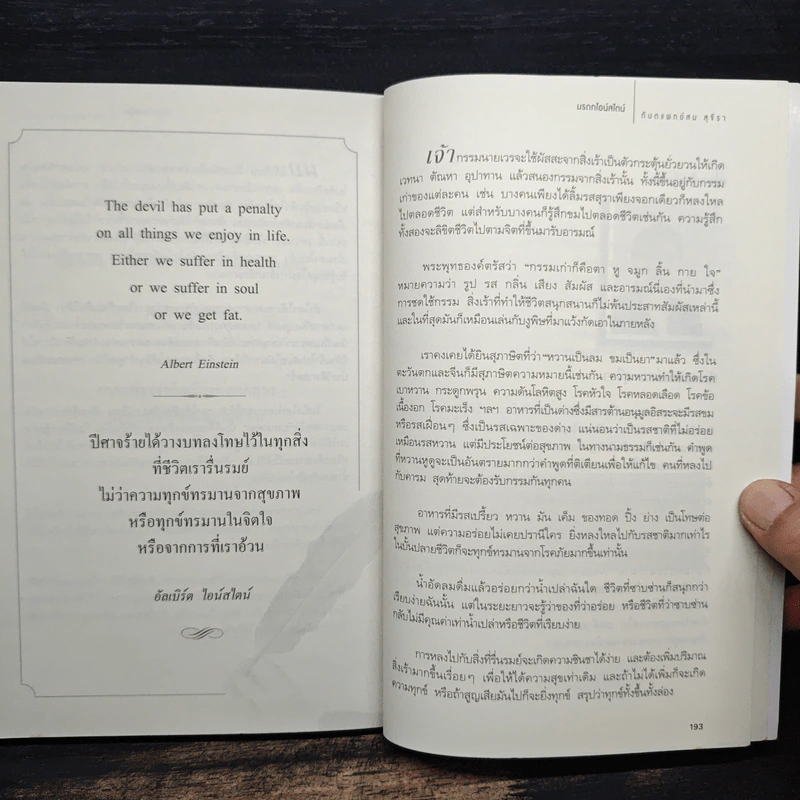 The devil has put a penalty
on all things we enjoy in life.
Either we suffer in health
or we suffer in soul
or we get fat.
Albert Einstein
ปีศาจร้ายได้วางบทลงโทษไว้ในทุกสิ่ง
ที่ชีวิตเรารื่นรมย์
ไม่ว่าความทุกข์ทรมานจากสุขภาพ
หรือทุกข์ทรมานในจิตใจ
หรือจากการที่เราอ้วน
อัลเบิร์ต ไอน์สไตน์
มรดกไอน์สไตน์
ทันตแพทย์สม สุจีรา
เจ้ากรรมนายเวรจะใช้ผัสสะจากสิ่งเร้าเป็นตัวกระตุ้นยั่วยวนให้เกิด
เวทนา ตัณหา อุปาทาน แล้วสนองกรรมจากสิ่งเร้านั้น ทั้งนี้ขึ้นอยู่กับกรรม
เก่าของแต่ละคน เช่น บางคนเพียงได้ลิ้มรสสุราเพียงจอกเดียวก็หลงใหล
ไปตลอดชีวิต แต่สำหรับบางคนก็รู้สึกขมไปตลอดชีวิตเช่นกัน ความรู้สึก
ทั้งสองจะลิขิตชีวิตไปตามจิตที่ขึ้นมารับอารมณ์
พระพุทธองค์ตรัสว่า “กรรมเก่าก็คือตา หู จมูก ลิ้น กาย ใจ”
หมายความว่า รูป รส กลิ่น เสียง สัมผัส และอารมณ์นี่เองที่นำมาซึ่ง
การชดใช้กรรม สิ่งเร้าที่ทำให้ชีวิตสนุกสนานก็ไม่พ้นประสาทสัมผัสเหล่านี้
และในที่สุดมันก็เหมือนเล่นกับงูพิษที่มาแว้งกัดเอาในภายหลัง
เราคงเคยได้ยินสุภาษิตที่ว่า“หวานเป็นลม ขมเป็นยา”มาแล้ว ซึ่งใน
ตะวันตกและจีนก็มีสุภาษิตความหมายนี้เช่นกัน ความหวานทำให้เกิดโรค
เบาหวาน กระดูกพรุน ความดันโลหิตสูง โรคหัวใจ โรคหลอดเลือด โรคข้อ
เนื้องอก โรคมะเร็ง ฯลฯ อาหารที่เป็นด่างซึ่งมีสารต้านอนุมูลอิสระจะมีรสขม
หรือรสเฝื่อนๆ ซึ่งเป็นรสเฉพาะของด่าง แน่นอนว่าเป็นรสชาติที่ไม่อร่อย
เหมือนรสหวาน แต่มีประโยชน์ต่อสุขภาพ ในทางนามธรรมก็เช่นกัน คำพูด
ที่หวานหูดูจะเป็นอันตรายมากกว่าคำพูดที่ติเตียนเพื่อให้แก้ไข คนที่หลงไป
กับคารม สุดท้ายจะต้องรับกรรมกันทุกคน
อาหารที่มีรสเปรี้ยว หวาน มัน เค็ม ของทอด ปิ้ง ย่าง เป็นโทษต่อ
สุขภาพ แต่ความอร่อยไม่เคยปรานีใคร ยิ่งหลงใหลไปกับรสชาติมากเท่าไร
ในบั้นปลายชีวิตก็จะทุกข์ทรมานจากโรคภัยมากขึ้นเท่านั้น
น้ำอัดลมดื่มแล้วอร่อยกว่าน้ำเปล่าฉันใด ชีวิตที่ซาบซ่านก็สนุกกว่า
เรียบง่ายฉันนั้น แต่ในระยะยาวจะรู้ว่าของที่ว่าอร่อย หรือชีวิตที่ว่าซาบซ่าน
กลับไม่มีคุณค่าเท่าน้ำเปล่าหรือชีวิตที่เรียบง่าย
การหลงไปกับสิ่งที่รื่นรมย์จะเกิดความชินชาได้ง่าย และต้องเพิ่มปริมาณ
สิ่งเร้ามากขึ้นเรื่อยๆ เพื่อให้ได้ความสุขเท่าเดิม และถ้าไม่ได้เพิ่มก็จะเกิด
ความทุกข์ หรือถ้าสูญเสียมันไปก็จะยิ่งทุกข์ สรุปว่าทุกข์ทั้งขึ้นทั้งล่อง
193